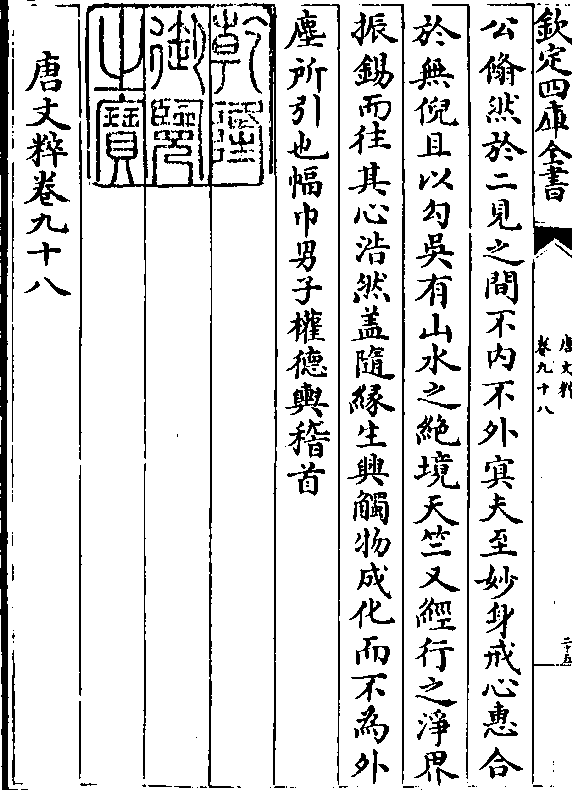 欽定四庫全書
唐文粹
卷九十八
二十五
公翛然於二見之間不内不外㝠夫至妙身戒心惠合
於無倪且以勾吳有山水之絶境天竺又經行之淨界
振錫而往其心浩然盖隨緣生興觸物成化而不為外
塵所引也幅巾男子權德輿稽首
乾隆
御覽
之寶
唐文粹卷九十八